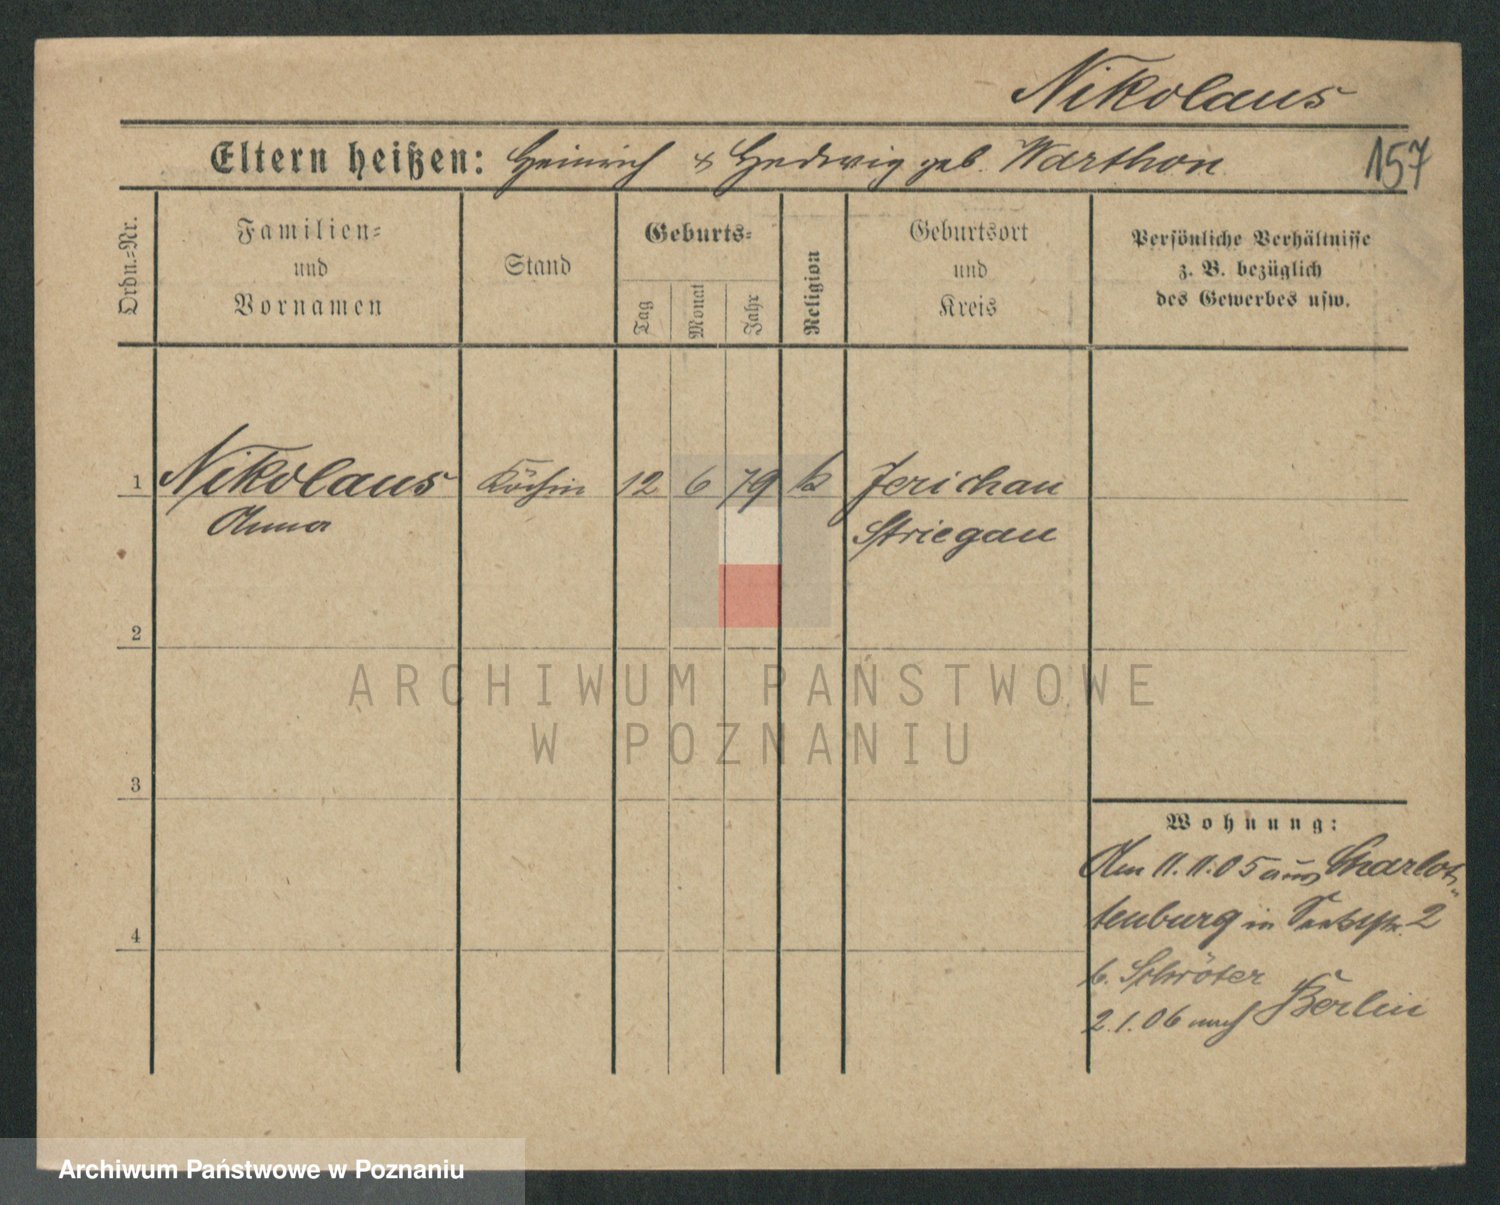 Nikolaus
Eltern heißen: Heinrich & Hedwig geb. Warthon
157
Ordn.-Nr.
Familien-
und
Vornamen
Stand
Geburts-
Tag
Monat
Jahr
Religion
Geburtsort
und
Kreis
Persönliche Verhältnisse
z. B. bezüglich
des Gewerbes usw.
1 Nikolaus Köchin 12 6 79 k Jerichau
Anna Striegau
2
ARCHIWUM PAŃSTWOWE
W POZNANIU
3
Wohnung:
Am 11.11.05 aus Charlot-
tenburg in 2
4
b. Schröter
2.1.06 nach Berlin
Archiwum Państwowe w Poznaniu